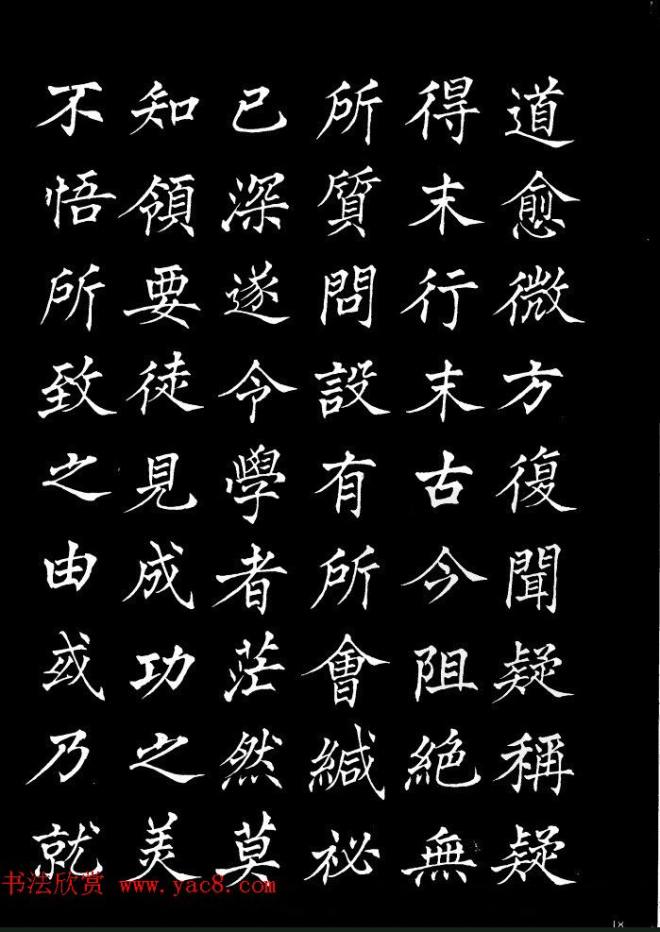 道愈微方復聞疑稱疑
得末行末古今阻絕無
所質問設有所會緘祕
已深遂令學者茫然莫
知領要徒見成功之美
不悟所致之由或乃就
书法欣赏 www.yac8.com
18